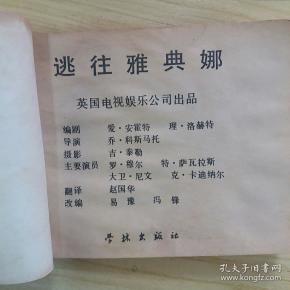 逃往雅典娜
英国电视娱乐公司出品
编剧 爱·安霍特 理·洛赫特
导演 乔·科斯马托
摄影 吉·泰勒
主要演员 罗·穆尔 特·萨瓦拉斯
大卫·尼文 克·卡迪纳尔
翻译 赵国华
改编 易豫 冯锋
学林出版社
孔夫子旧书网